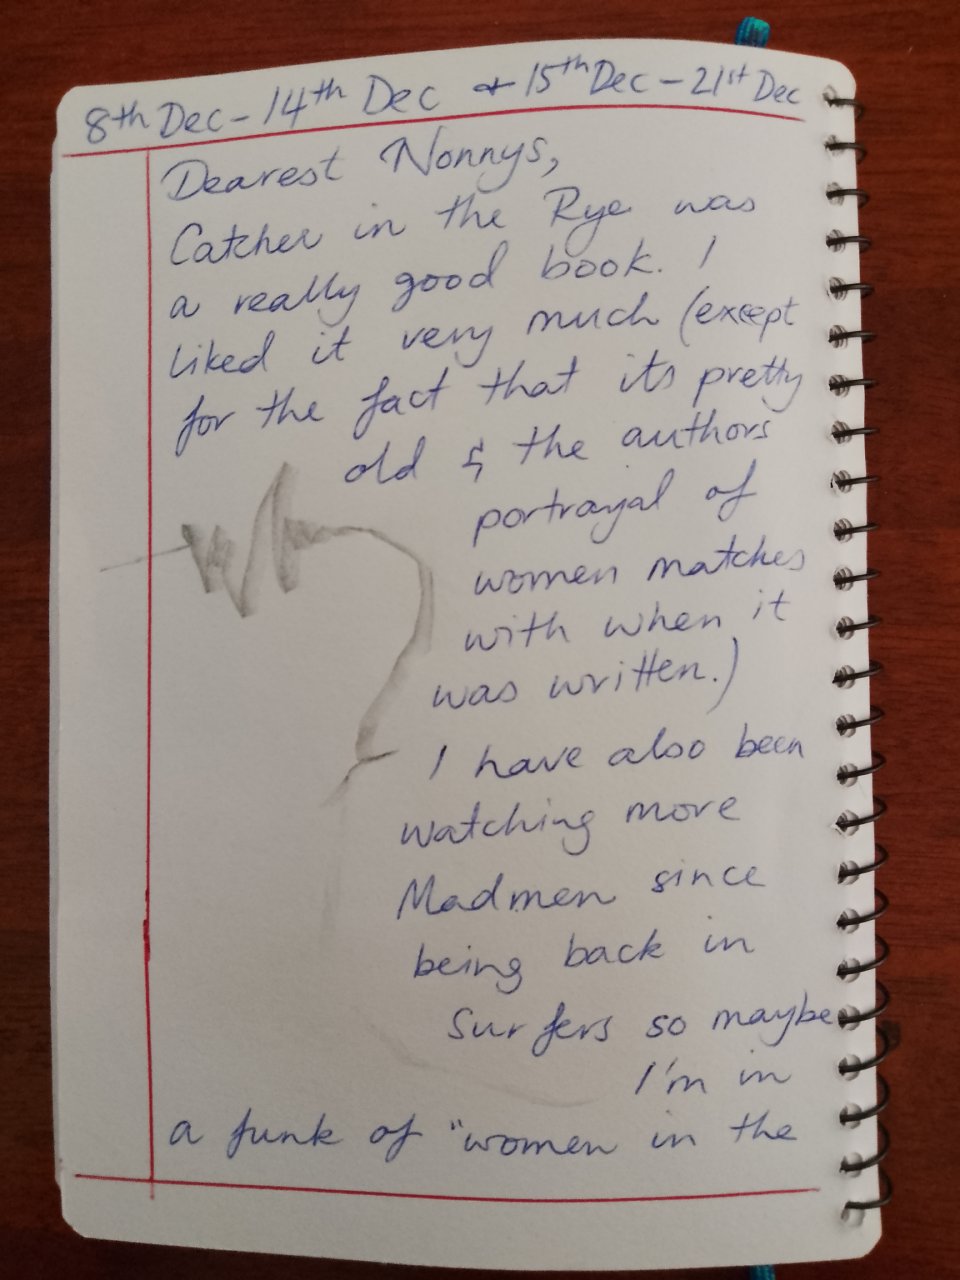 8th Dec - 14th Dec + 15th Dec - 21st Dec
Dearest Nonnys,
Catcher in the Rye was
a really good book. I
liked it very much (except
for the fact that its pretty
old & the authors
portrayal of
women matches
with when it
was written.)
I have also been
watching more
Madmen since
being back in
Surfers so maybe
I'm in
a funk of "women in the